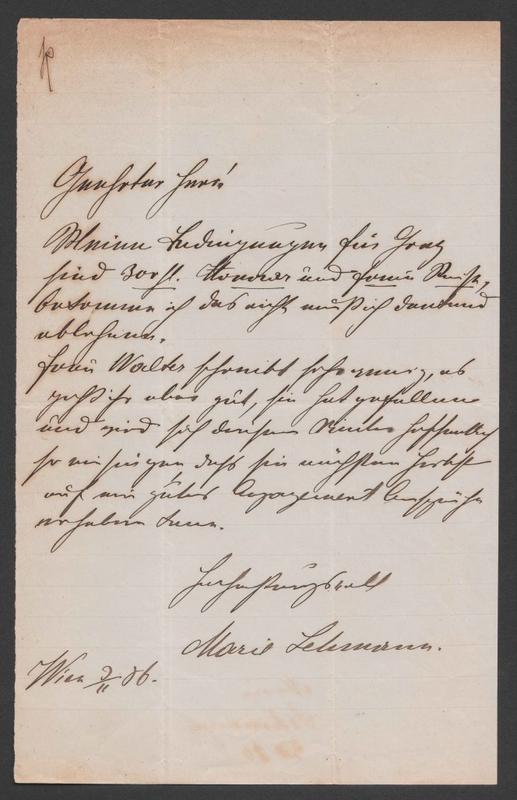 Geehrter Herr!
Meine Bedingungen für Graz
sind 300 fl. Honorar und freie Reise,
bekomme ich das nicht muß ich dankend
ablehnen.
Frau Walter schreibt sehr wenig, es
geht ihr aber gut, sie hat gefallen
und wird sich diesen Winter hoffentlich
so einsingen daß sie nächsten Herbst
auf ein gutes Engagement Ansprüche
erheben kann.
Hochachtungsvoll
Marie Lehmann.
Wien 2/11 86.